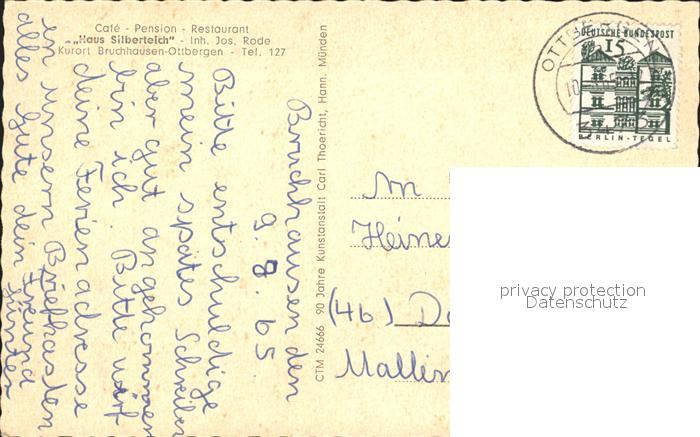 Café - Pension - Restaurant
„Haus Silberteich" - Inh. Jos. Rode
Kurort Bruchhausen-Ottbergen - Tel. 127
Bruchhausen den
9. 8. 65.
Bitte entschuldige
mein spätes Schreiben
aber gut angekommen
bin ich. Bitte wirf
deine Ferienadresse
in unsern Briefkasten
alles Gute dein Freund
CTM 24666 90 Jahre Kunstanstalt Carl Thoericht, Hann. Münden
OTTBERGEN
DEUTSCHE BUNDESPOST
15
BERLIN-TEGEL
An
Heine
(46)
Mallin
privacy protection
Datenschutz